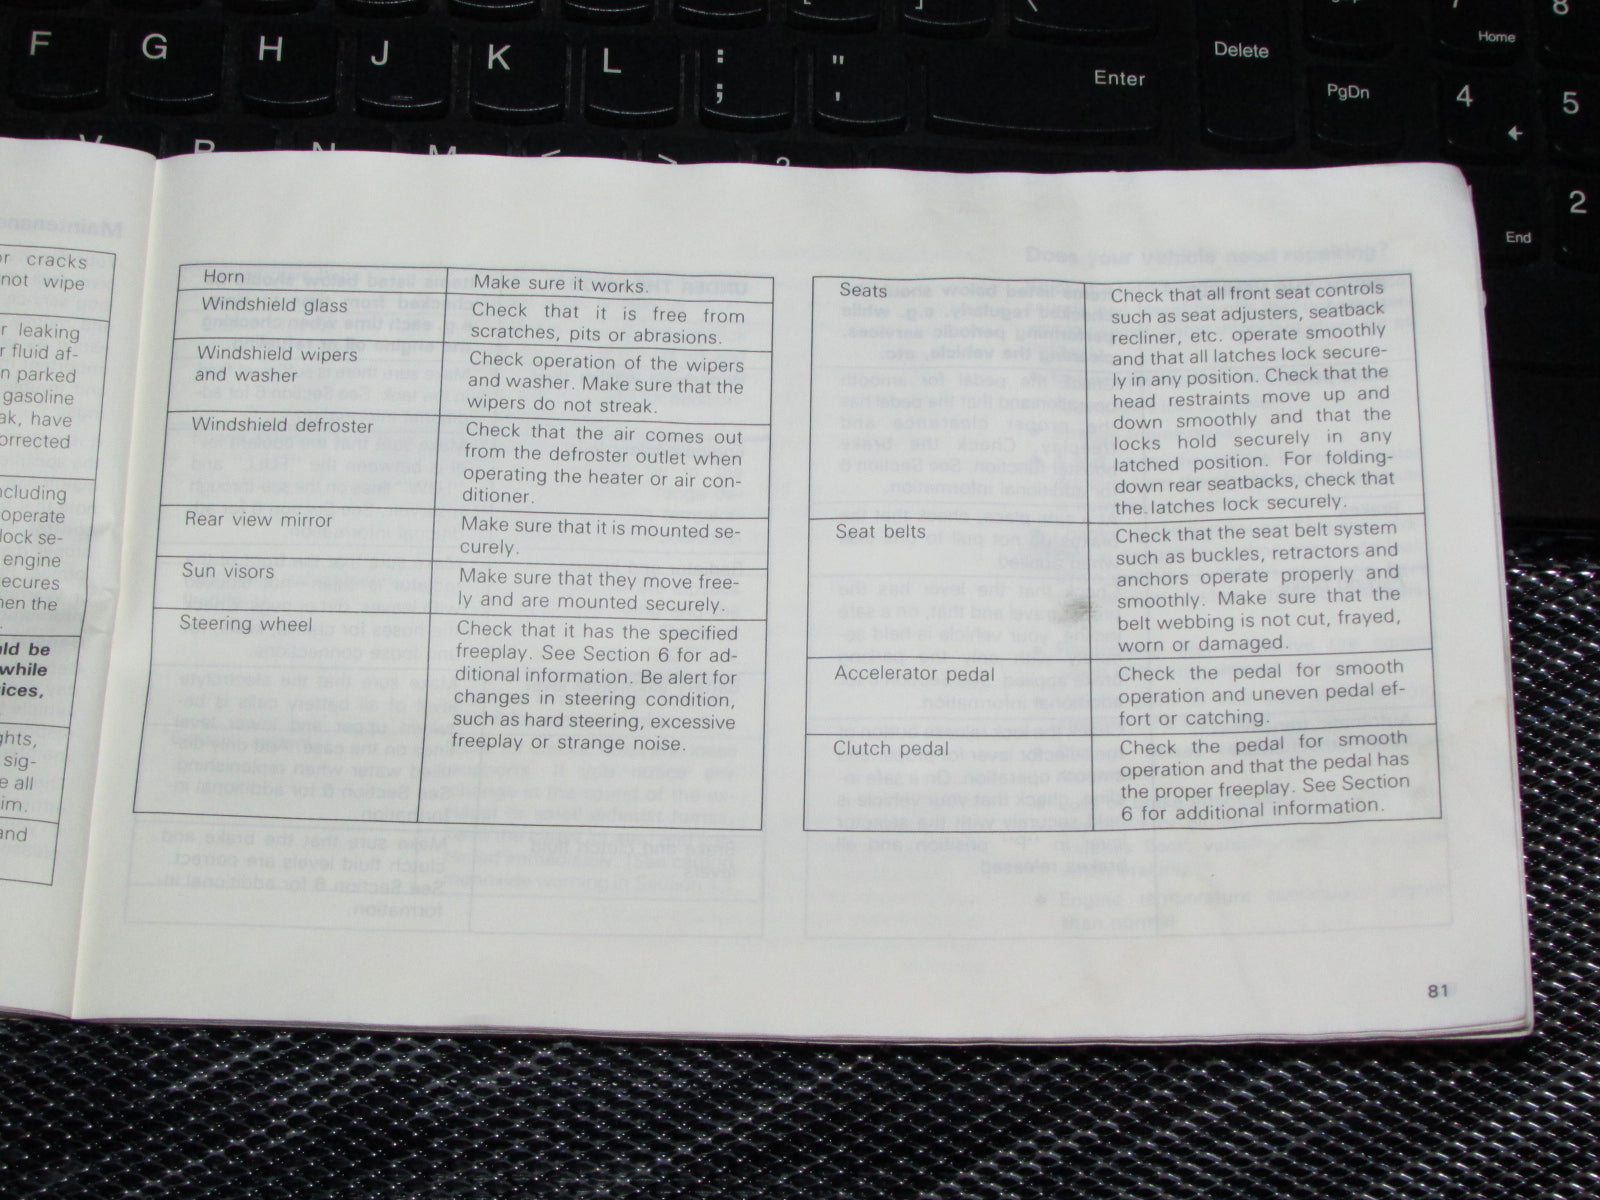 8
F G H J K L : " Enter Delete Home
; ' PgDn 4 5
V B N M < > ?
2
End
or cracks
not wipe
r leaking
r fluid af-
n parked
gasoline
ak, have
orrected
ncluding
operate
lock se-
engine
ecures
hen the
ld be
while
ices,
ghts,
sig-
e all
im.
and
Horn
Make sure it works.
Windshield glass
Check that it is free from
scratches, pits or abrasions.
Windshield wipers
and washer
Check operation of the wipers
and washer. Make sure that the
wipers do not streak.
Windshield defroster
Check that the air comes out
from the defroster outlet when
operating the heater or air con-
ditioner.
Rear view mirror
Make sure that it is mounted se-
curely.
Sun visors
Make sure that they move free-
ly and are mounted securely.
Steering wheel
Check that it has the specified
freeplay. See Section 6 for ad-
ditional information. Be alert for
changes in steering condition,
such as hard steering, excessive
freeplay or strange noise.
Seats
Check that all front seat controls
such as seat adjusters, seatback
recliner, etc. operate smoothly
and that all latches lock secure-
ly in any position. Check that the
head restraints move up and
down smoothly and that the
locks hold securely in any
latched position. For folding-
down rear seatbacks, check that
the latches lock securely.
Seat belts
Check that the seat belt system
such as buckles, retractors and
anchors operate properly and
smoothly. Make sure that the
belt webbing is not cut, frayed,
worn or damaged.
Accelerator pedal
Check the pedal for smooth
operation and uneven pedal ef-
fort or catching.
Clutch pedal
Check the pedal for smooth
operation and that the pedal has
the proper freeplay. See Section
6 for additional information.
81